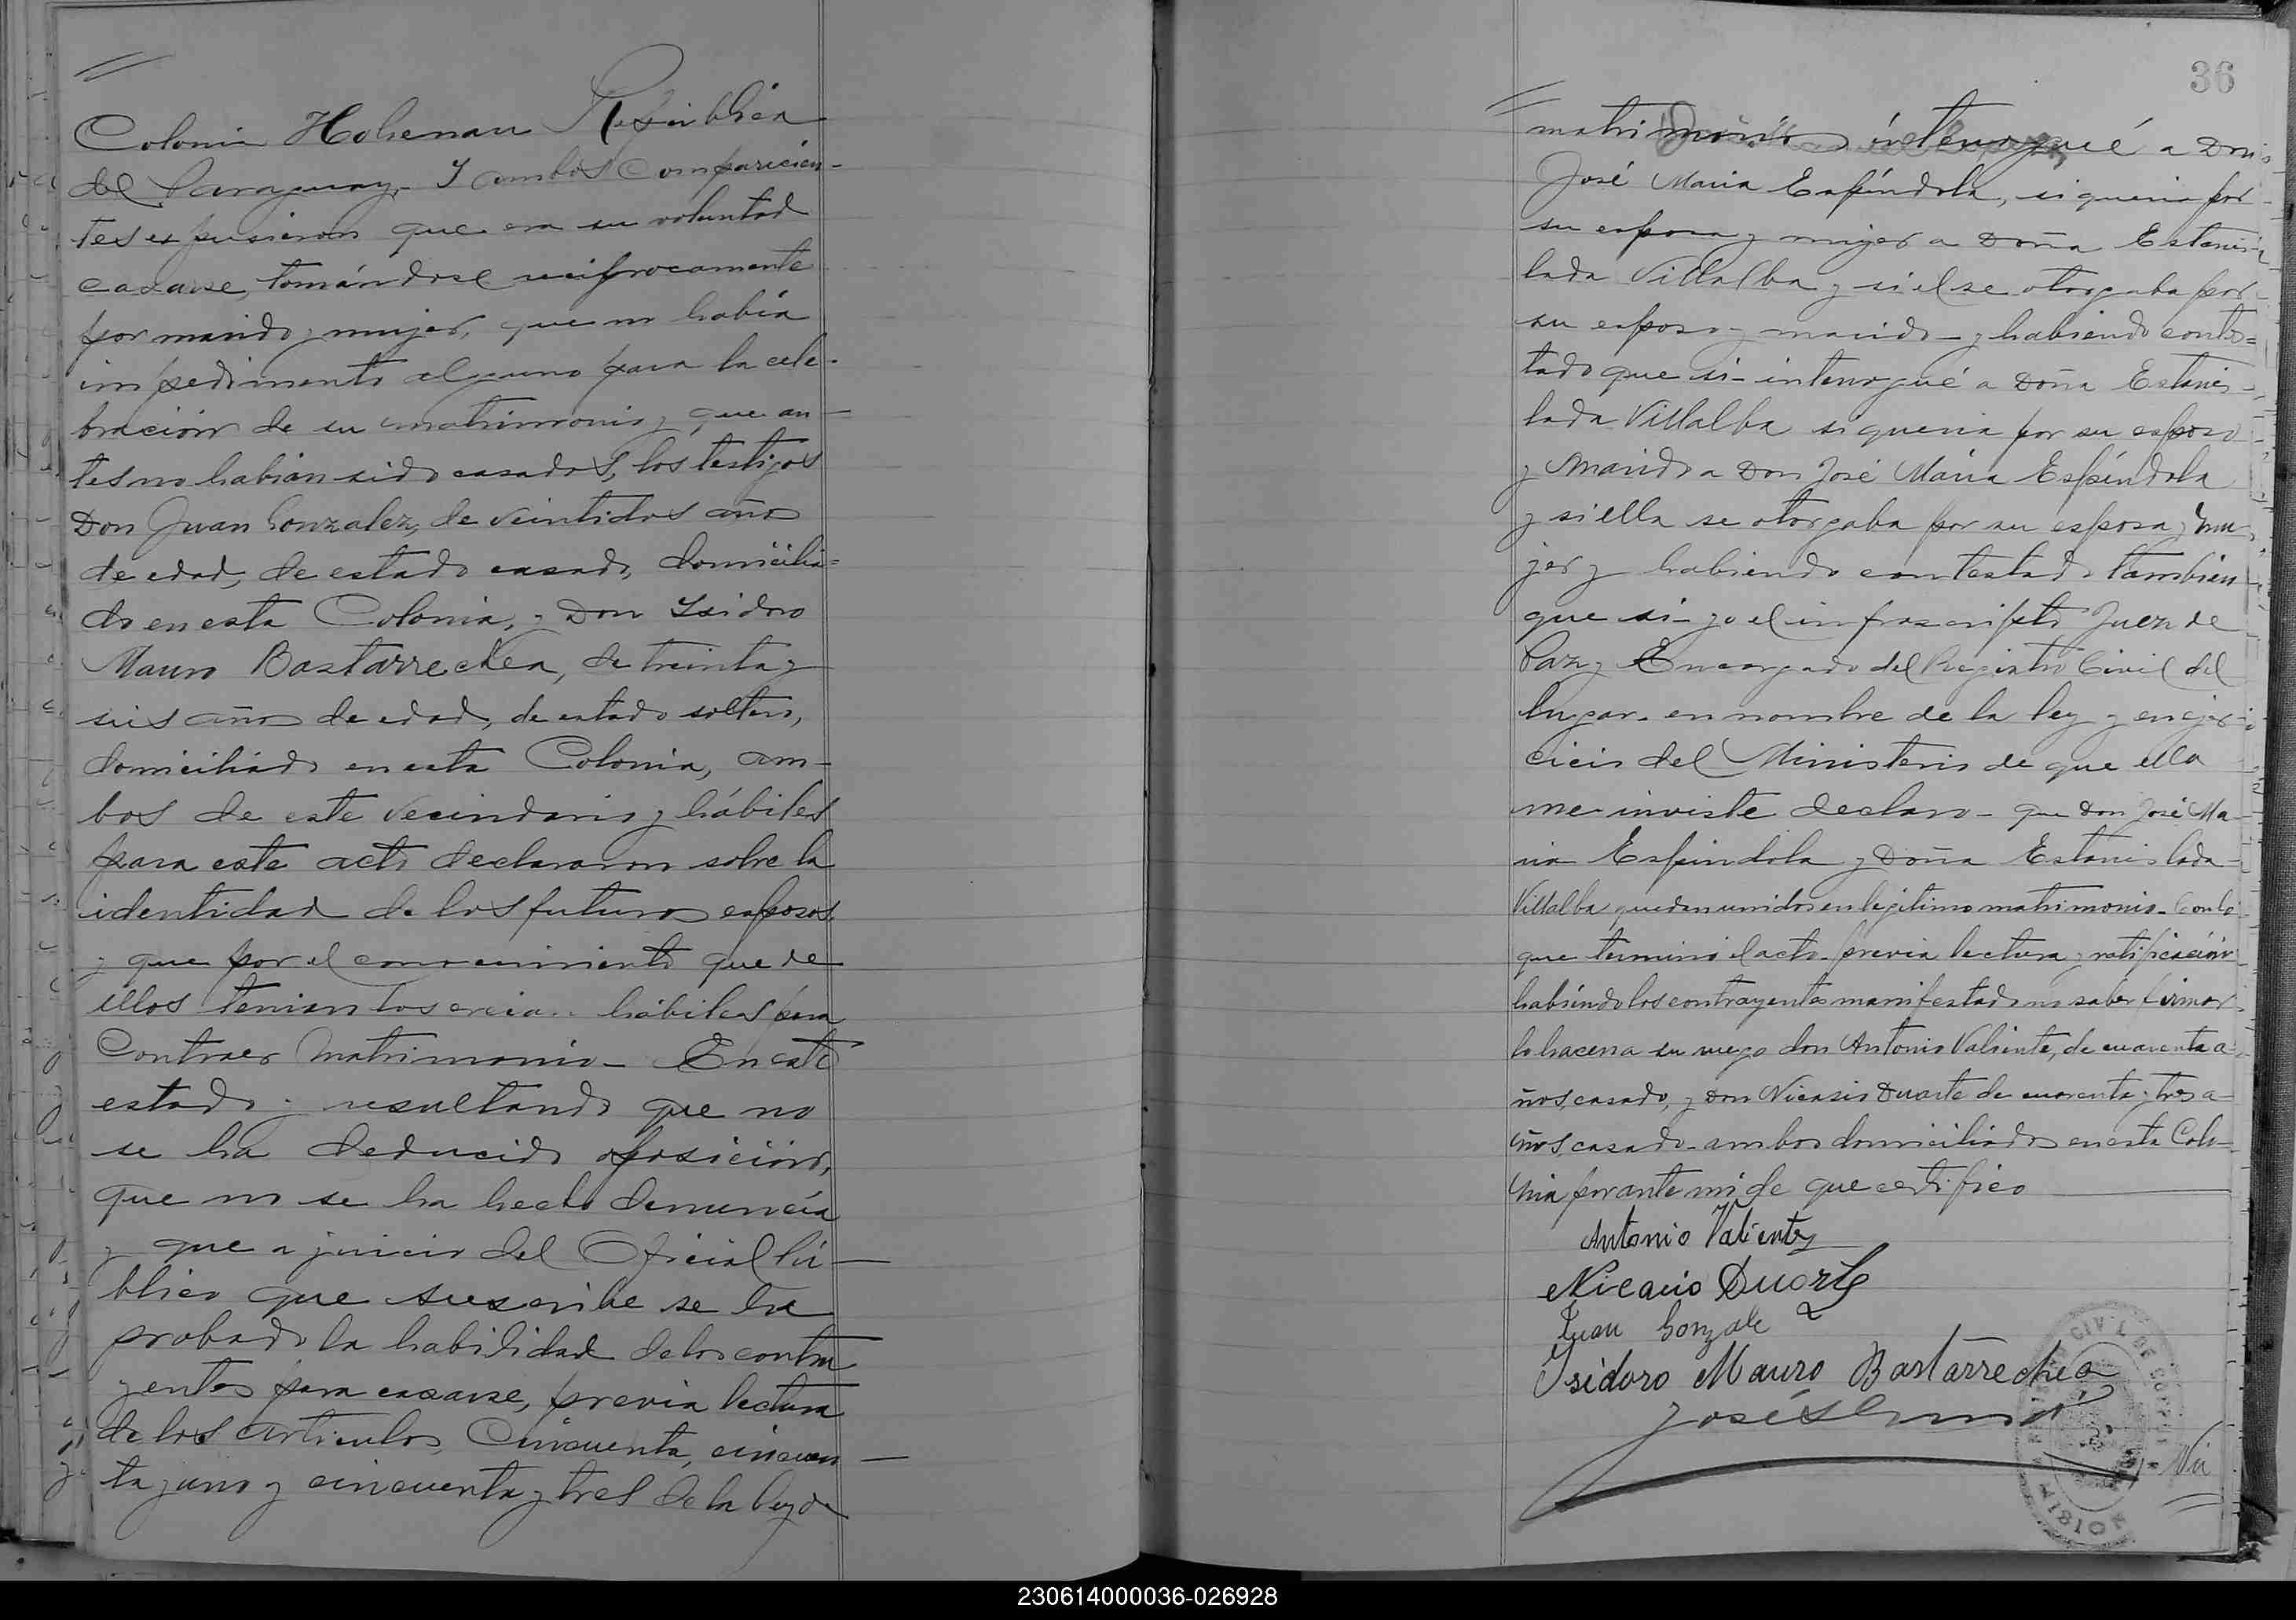 Colonia Hohenau República
del Paraguay. Y ambos comparicien-
tes expusieron que era su voluntad
casarse, tomándose recíprocamente
por marido y mujer, que no había
impedimento alguno para la cele-
bración de su matrimonio y que an-
tes no habian sido casados, los testigos
Don Juan Gonzalez, de veintidos años
de edad, de estado casado, domicilia-
do en esta Colonia, y Don Isidoro
Mauro Bastarrechea, de treinta y
seis años de edad, de estado soltero,
domiciliado en esta Colonia, am-
bos de este vecindario y hábiles
para este acto declararon sobre la
identidad de los futuros esposos
y que por el conocimiento que de
ellos tenian los creian hábiles para
Contraer Matrimonio - En este
estado y resultando que no
se ha deducido oposición,
que no se ha hecho denuncia
y que a juicio del Oficial Pú-
blico que suscribe se ha
probado la habilidad de los contra
yentes para casarse, previa lectura
de los articulos Cincuenta, cincuen
ta y uno y cincuenta y tres de la ley de
36
matrimonio interrogué a Don
José Maria Espíndola, si queria por
su esposa y mujer a Doña Estanis-
lada Villalba y si el se otorgaba por
su esposo y marido - y habiendo contes=
tado que si - interrogué a Doña Estanis-
lada Villalba si queria por su esposo
y marido a Don José Maria Espíndola
y si ella se otorgaba por su esposa y mu
jer y habiendo contestado tambien
que si - yo el infrascripto Juez de
Paz y Encargado del Registro Civil del
lugar - en nombre de la ley y en ejer-
cicio del Ministerio de que ella
me inviste declaro - que Don José Ma-
ria Espindola y Doña Estanislada
Villalba quedan unidos en legitimo matrimonio - Con lo
que terminó el acto - previa lectura y ratificación
habiéndo los contrayentes manifestado no saber firmar
lo hacen a su ruego don Antonio Valiente, de cuarenta a-
ños, casado, y Don Nicasio Duarte de cuarenta y tres a-
ños casado - ambos domiciliados en esta Colo-
nia por ante mi de que certifico
Antonio Valiente
Nicacio Duarte
Juan Gonzalez
Isidoro Mauro Bastarrechea
José
230614000036-026928